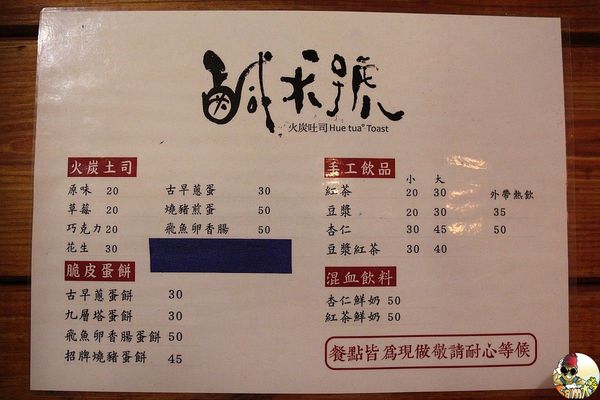 鹹禾號
火炭吐司 Hue tua° Toast
火炭土司
原味 20
草莓 20
巧克力 20
花生 30
古早蔥蛋 30
燒豬煎蛋 50
飛魚卵香腸 50
脆皮蛋餅
古早蔥蛋餅 30
九層塔蛋餅 30
飛魚卵香腸蛋餅 50
招牌燒豬蛋餅 45
手工飲品
小 大 外帶熱飲
紅茶 20 30
豆漿 20 30 35
杏仁 30 45 50
豆漿紅茶 30 40
混血飲料
杏仁鮮奶 50
紅茶鮮奶 50
餐點皆為現做敬請耐心等候